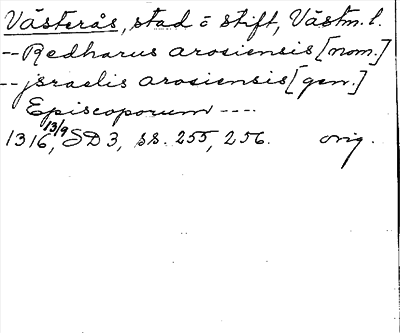 Västerås, stad o stift, Västm. l.
-- Redharus arosiensis [nom.]
-- jsraelis arosiensis [gen.]
Episcoporum ----
1316, 13/9 SD 3, ss. 255, 256. orig.